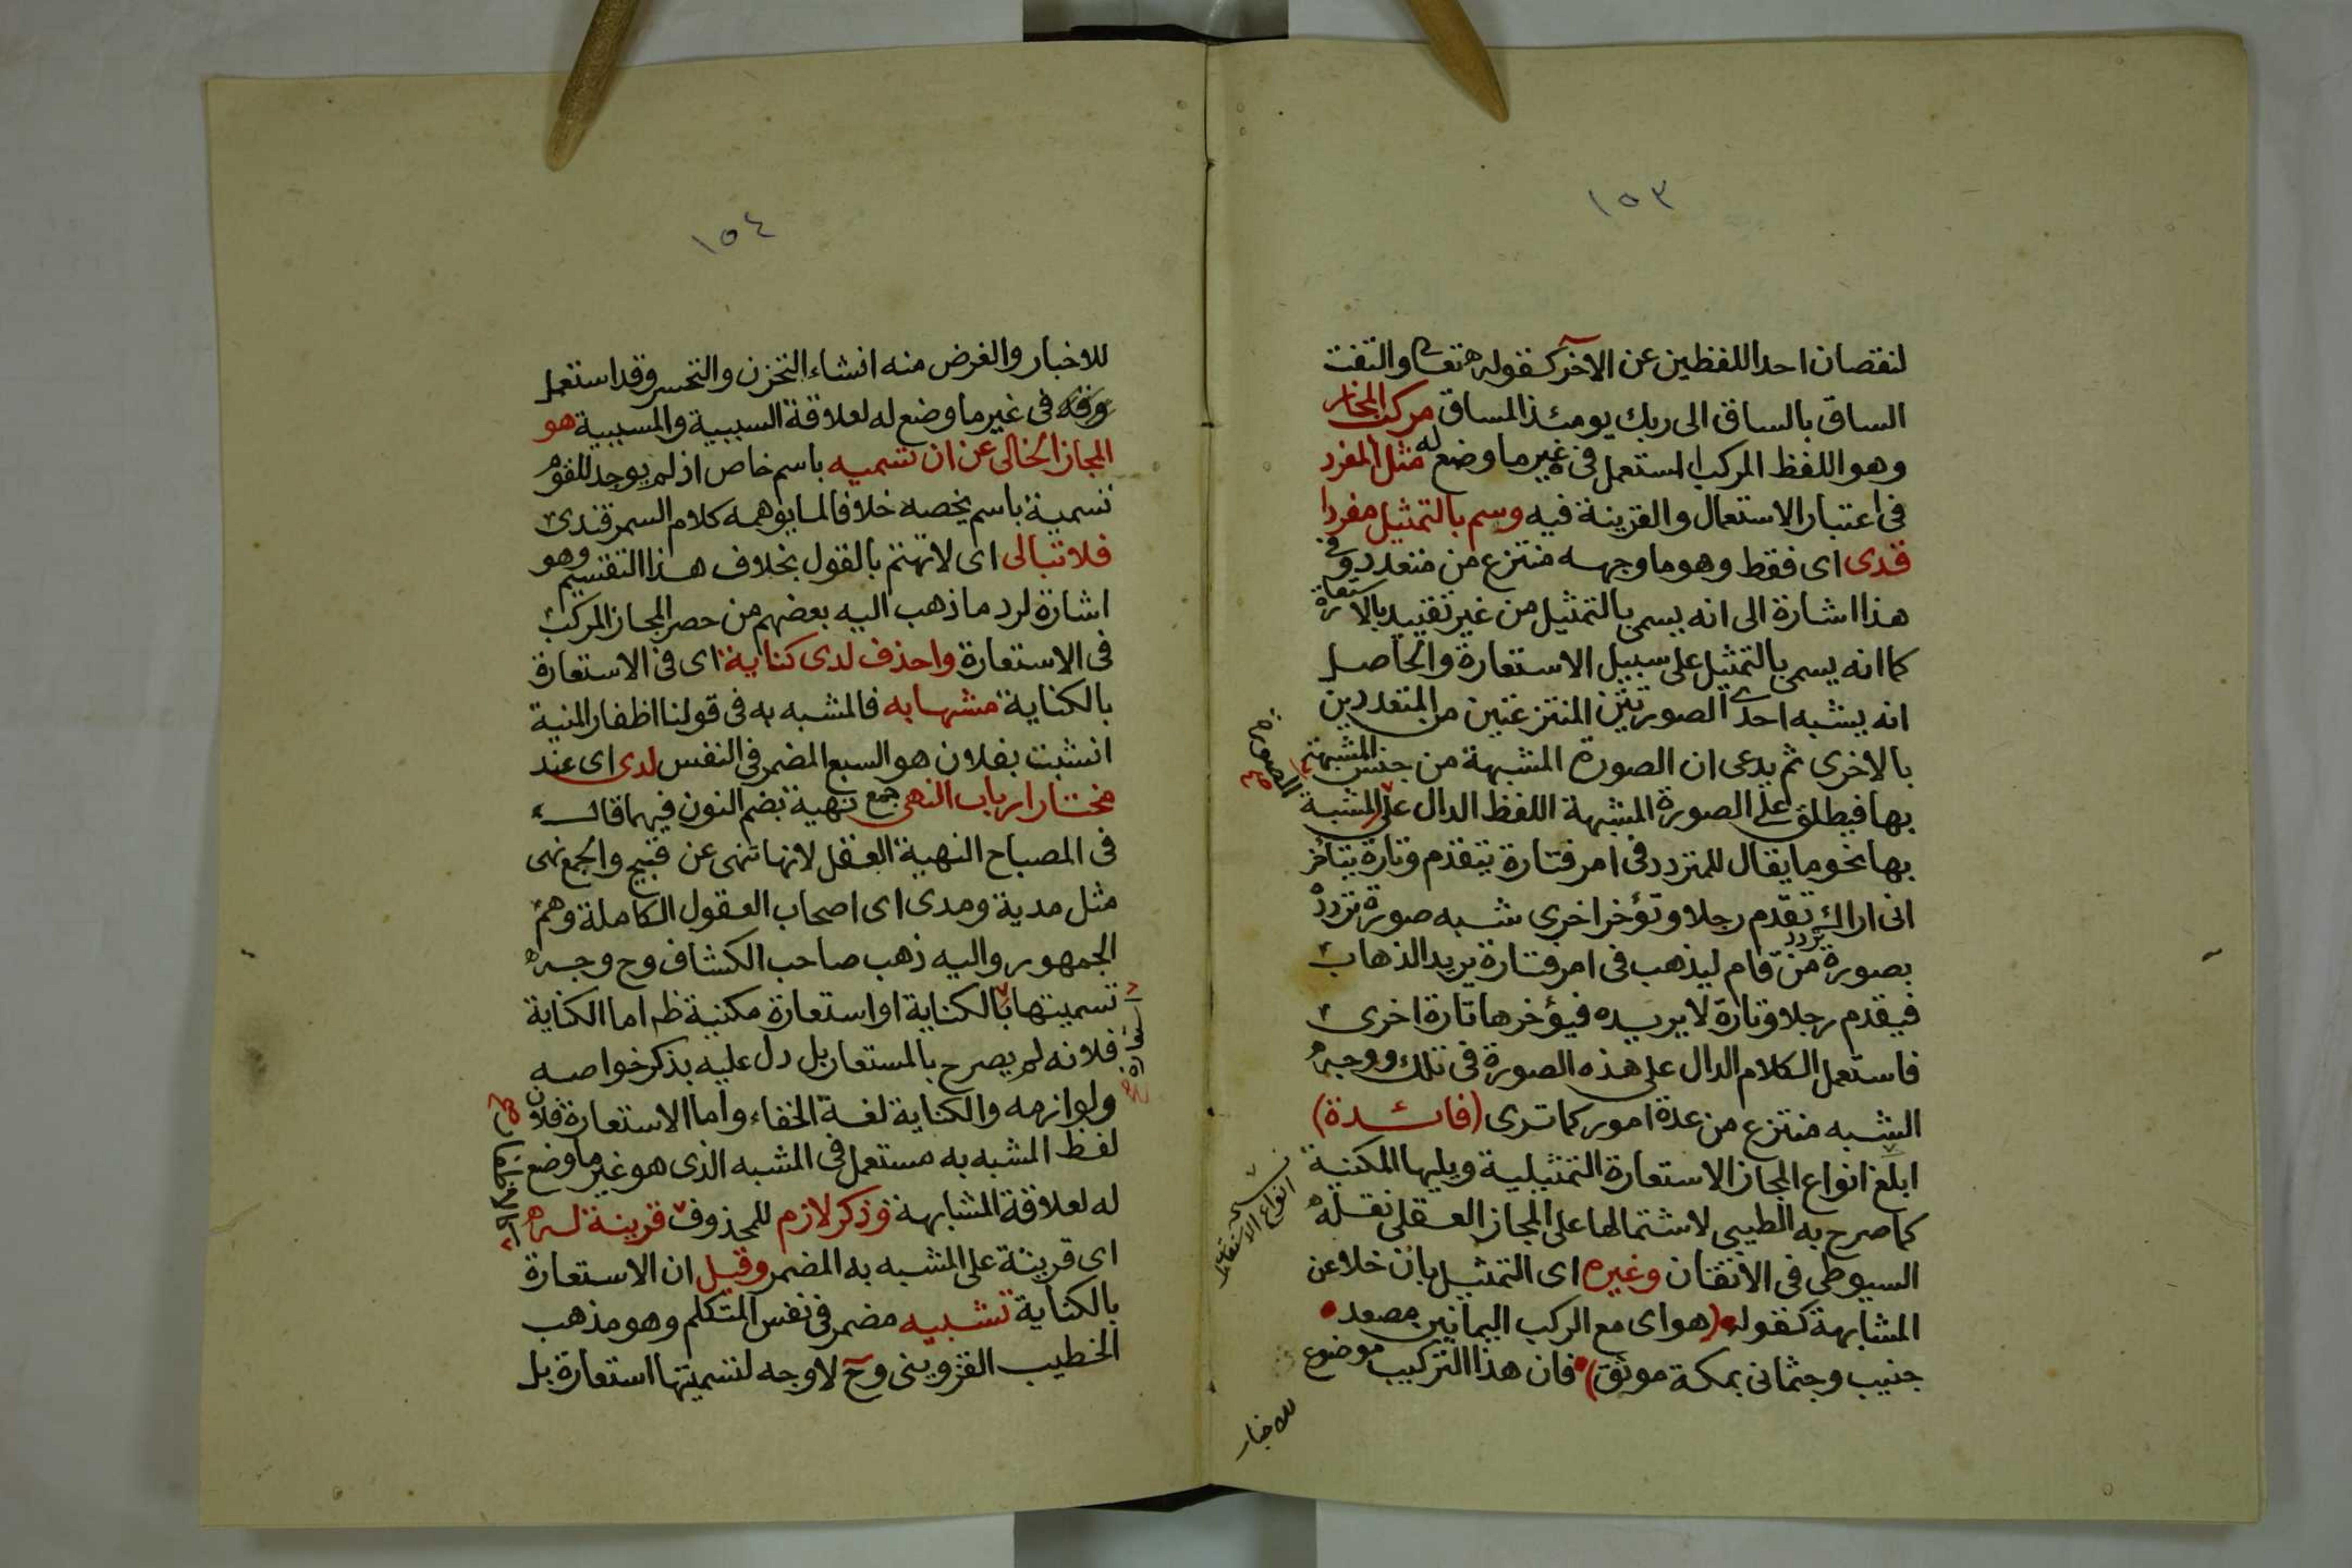 ١٥٣
لنقصان احد اللفظين عن الاخر كقوله تعا والتفت
الساق بالساق الى ربك يومئذ المساق مركب المجاز
وهو اللفظ المركب المستعمل فى غير ما وضع له مثل المفرد
فى اعتبار الاستعمال والقرينة فيه وسم بالتمثيل مفردا
قدى اى فقط وهو ما وجهه منتزع من متعدد وفى
هذا اشارة الى انه يسمى بالتمثيل من غير تقييد بالاستعارة
كما انه يسمى بالتمثيل على سبيل الاستعارة والحاصل
انه يشبه احدى الصورتين المنتزعتين من المتعددين
بالاخرى ثم يدعى ان الصورة المشبهة من جنس المشبهة
بها فيطلق على الصورة المشبهة اللفظ الدال على المشبة
بها نحو ما يقال للمتردد فى امر فتارة يتقدم وتارة يتأخر
انى اراك تقدم رجلا وتؤخر اخرى شبه صورة تردده
بصورة تردد من قام ليذهب فى امر فتارة يريد الذهاب
فيقدم رجلا وتارة لا يريده فيؤخرها تارة اخرى
فاستعمل الكلام الدال على هذه الصورة فى تلك ووجه
الشبه منتزع من عدة امور كما ترى (فائدة)
ابلغ انواع المجاز الاستعارة التمثيلية ويليها المكنية
كما صرح به الطيبى لاشتمالها على المجاز العقلى نقله
السيوطى فى الاتقان وغيره اى التمثيل بان خلا عن
المشابهة كقوله (هواى مع الركب اليمانين مصعد
جنيب وجثمانى بمكة موثق) فان هذا التركيب موضوع
للاخبار
الصورة صح
انواع الاستعارة
١٥٤
للاخبار والغرض منه انشاء التحزن والتحسر وقد استعمل
فى غير ما وضع له لعلاقة السببية والمسببية هو
المجاز الخالى عن ان تسميه باسم خاص اذ لم يوجد للقوم
تسمية باسم يخصه خلافا لما يوهمه كلام السمرقندى
فلا تبالى اى لا تهتم بالقول بخلاف هذا التقسيم وهو
اشارة لرد ما ذهب اليه بعضهم من حصر المجاز المركب
فى الاستعارة واحذف لدى كناية اى فى الاستعارة
بالكناية مشبها به فالمشبه به فى قولنا اظفار المنية
انشبت بفلان هو السبع المضمر فى النفس لدى اى عند
مختار ارباب النهى جمع نهية بضم النون فيهما قال
فى المصباح النهية العقل لانها تنهى عن قبيح والجمع نهى
مثل مدية ومدى اى اصحاب العقول الكاملة وهم
الجمهور واليه ذهب صاحب الكشاف وح وجه
تسميتها بالكناية او استعارة مكنية ظ اما الكناية
فلانه لم يصرح بالمستعار بل دل عليه بذكر خواصه
ولوازمه والكناية لغة الخفاء واما الاستعارة فلان
لفظ المشبه به مستعمل فى المشبه الذى هو غير ما وضع
له لعلاقة المشابهة وذكر لازم للمحذوف قرينة له
اى قرينة على المشبه به المضمر وقيل ان الاستعارة
بالكناية تشبيه مضمر فى نفس المتكلم وهو مذهب
الخطيب القزوينى وح لا وجه لتسميتها استعارة بل